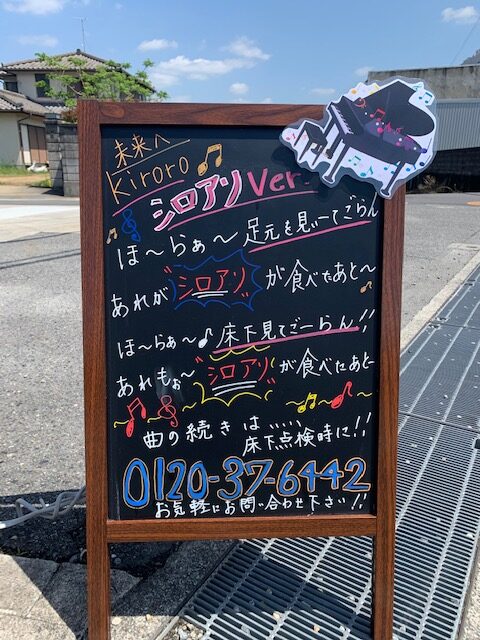 未来へ
Kiroro
シロアリ Ver.
ほ～らぁ～足元を見ぃーてごらん
あれがシロアリが食べたあと～
ほ～らぁ～床下見てごーらん!!
あれもぉ～シロアリが食べたあと～
曲の続きは.....
床下点検時に!!
0120-37-6442
お気軽にお問い合わせ下さい!!